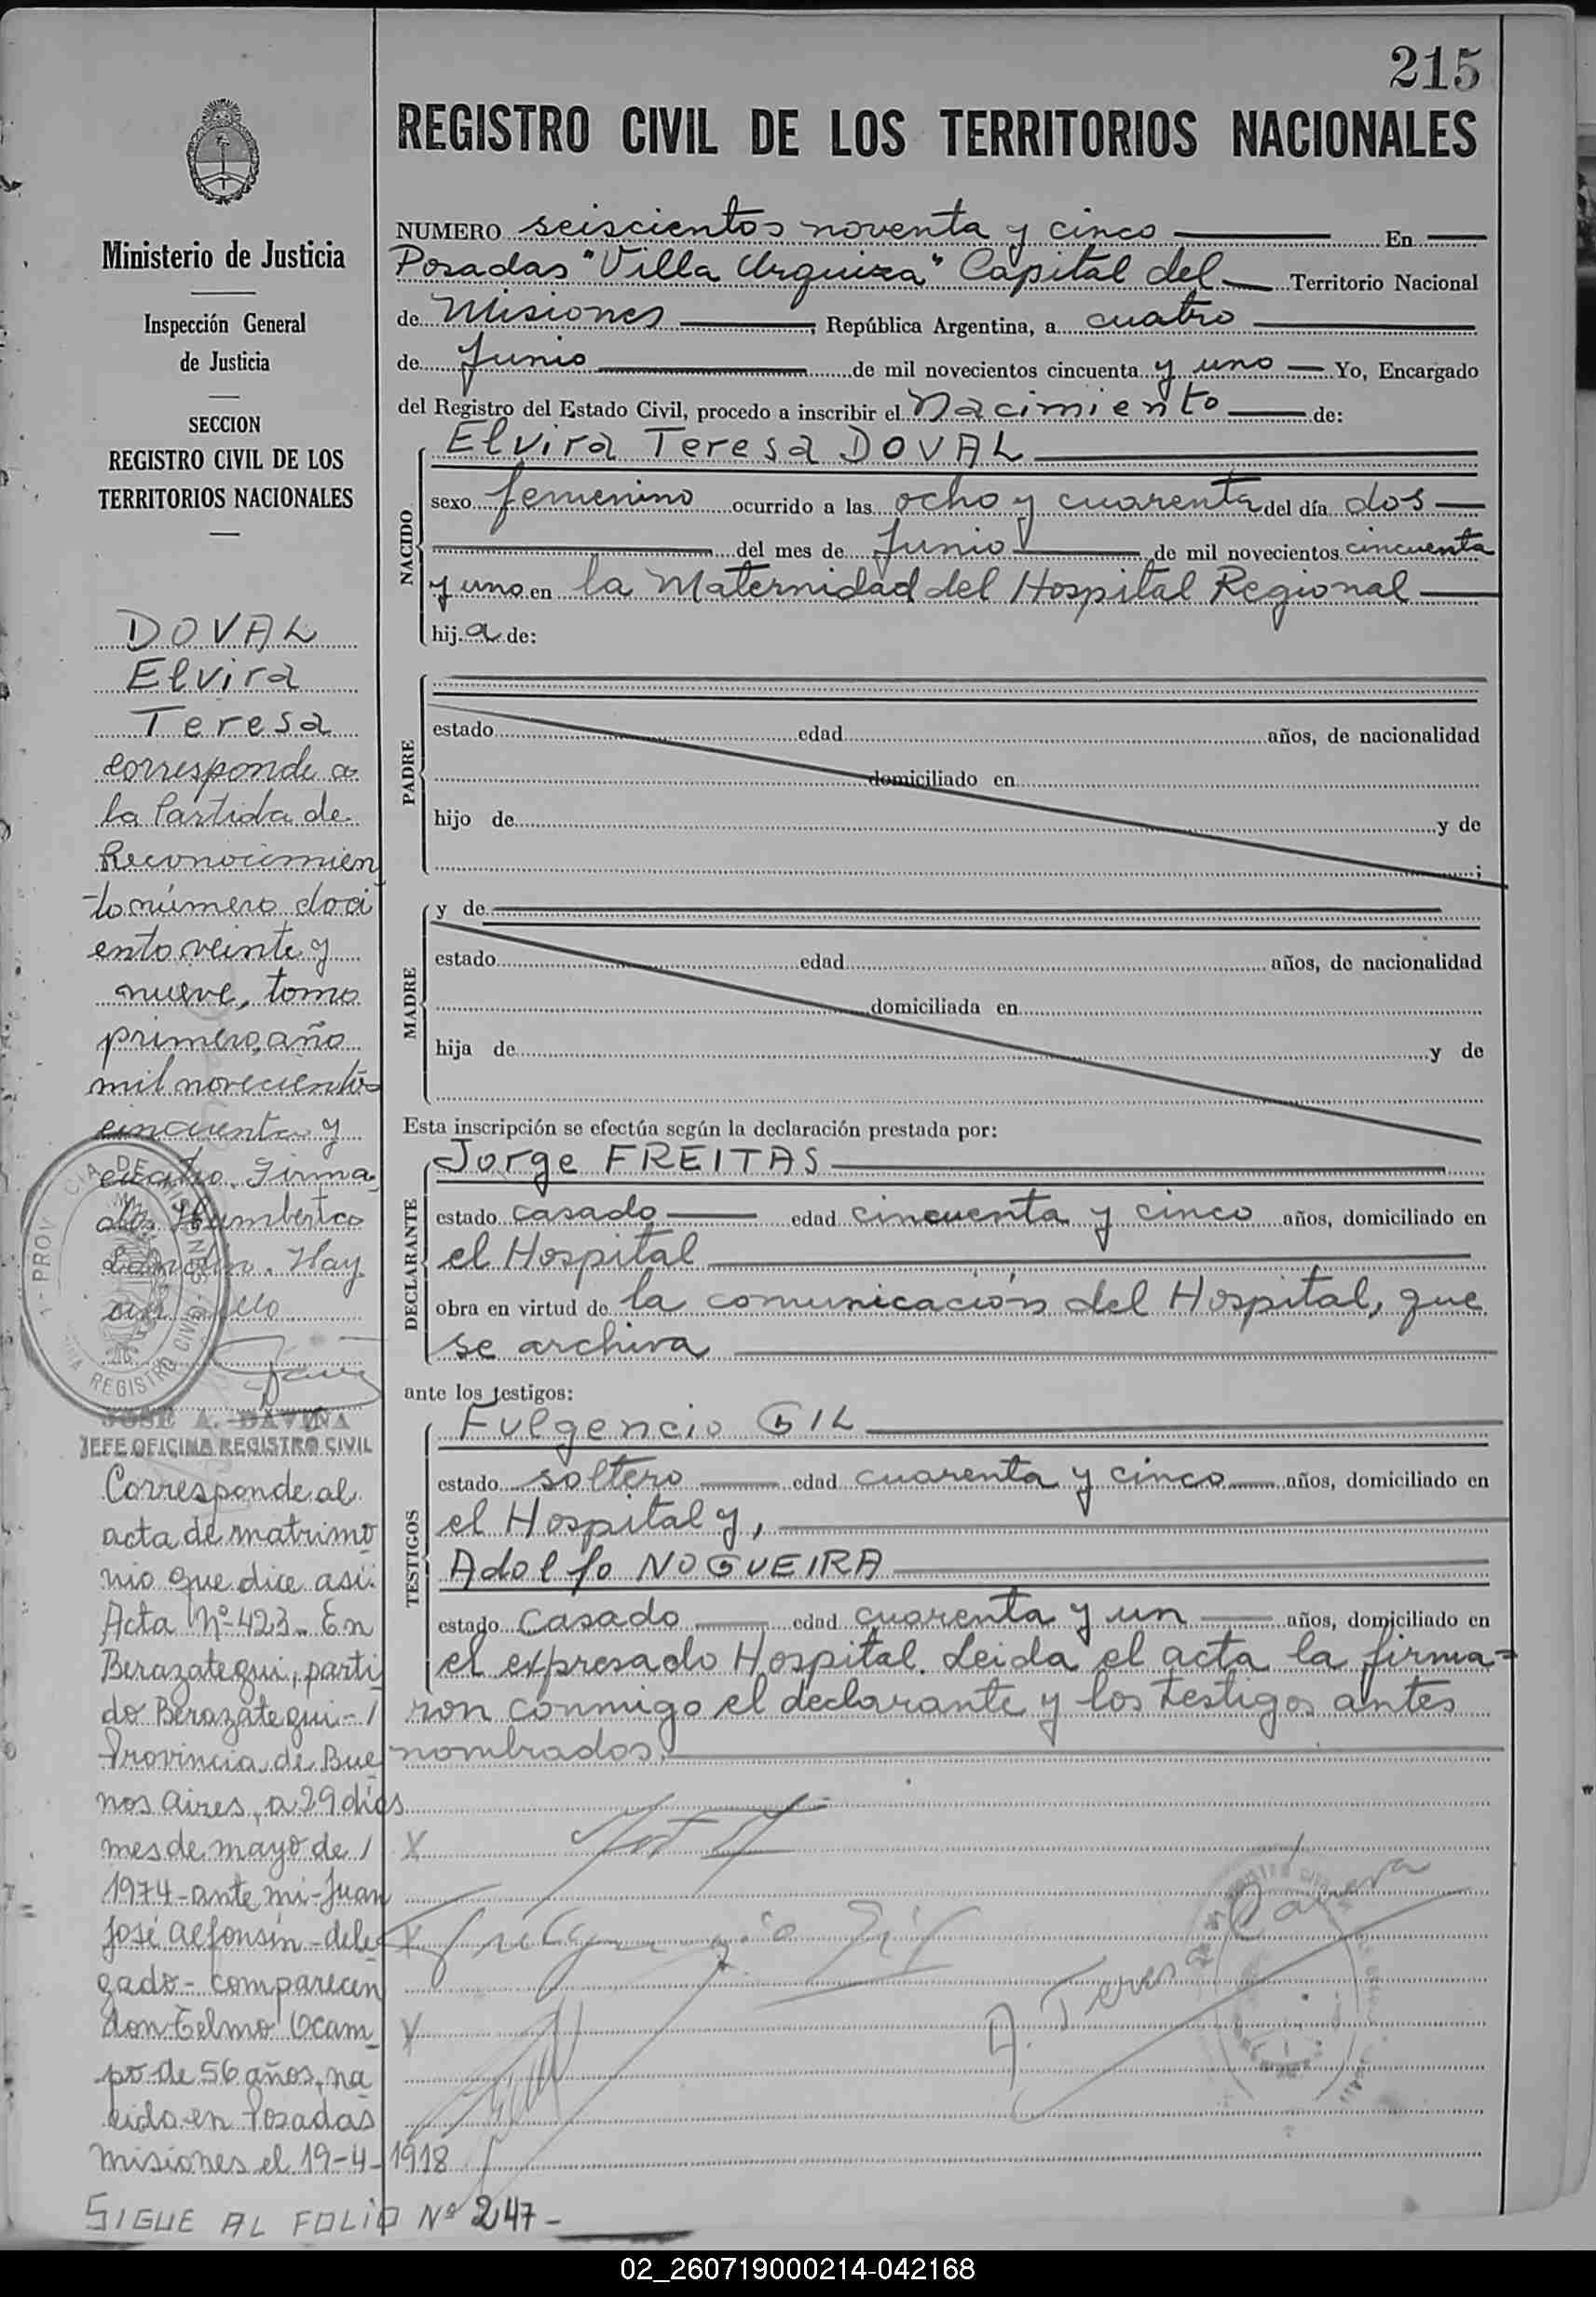 215
REGISTRO CIVIL DE LOS TERRITORIOS NACIONALES
Ministerio de Justicia
Inspección General
de Justicia
SECCION
REGISTRO CIVIL DE LOS
TERRITORIOS NACIONALES
DOVAL
Elvira
Teresa
corresponde a
la Partida de
Reconocimien
to número doci
ento veinte y
nueve, tomo
primero, año
mil novecientos
cincuenta y
cuatro. Firma
do: Humberto
Hay
un sello
JOSE A. DAVIÑA
JEFE OFICINA REGISTRO CIVIL
Corresponde al
acta de matrimo
nio que dice asi:
Acta Nº 423. En
Berazategui, parti
do Berazategui - /
Provincia de Bue
nos Aires, a 29 días
mes de mayo de /
1974 - ante mi - Juan
José Alfonsín - dele
gado - comparecen
don Telmo Ocam
po de 56 años, na
cido en Posadas
Misiones el 19-4-1918
SIGUE AL FOLIO Nº 247-
NUMERO seiscientos noventa y cinco En
Posadas "Villa Urquiza" Capital del Territorio Nacional
de Misiones, República Argentina, a cuatro
de Junio de mil novecientos cincuenta y uno Yo, Encargado
del Registro del Estado Civil, procedo a inscribir el Nacimiento de:
NACIDO
Elvira Teresa DOVAL
sexo femenino ocurrido a las ocho y cuarenta del día dos
del mes de Junio de mil novecientos cincuenta
y uno en la Maternidad del Hospital Regional
hij a de:
PADRE
estado edad años, de nacionalidad
domiciliado en
hijo de y de
;
MADRE
y de
estado edad años, de nacionalidad
domiciliada en
hija de y de
Esta inscripción se efectúa según la declaración prestada por:
DECLARANTE
Jorge FREITAS
estado casado edad cincuenta y cinco años, domiciliado en
el Hospital
obra en virtud de la comunicación del Hospital, que
se archiva
ante los testigos:
TESTIGOS
Fulgencio GIL
estado soltero edad cuarenta y cinco años, domiciliado en
el Hospital y,
Adolfo NOGUEIRA
estado casado edad cuarenta y un años, domiciliado en
el expresado Hospital. Leida el acta la firma=
ron conmigo el declarante y los testigos antes
nombrados.
X
X Fulgencio Gil
X
A. Teresa
02_260719000214-042168